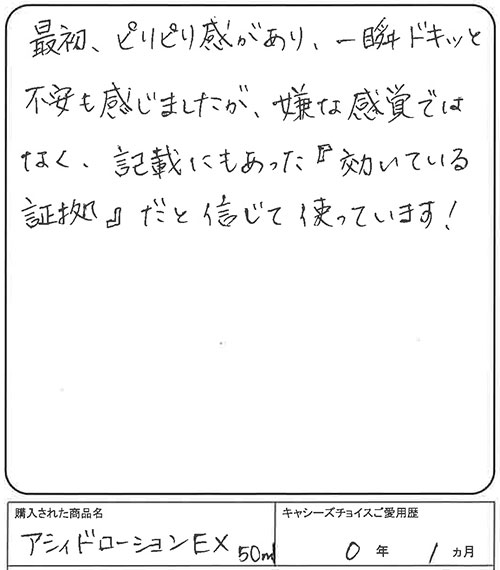 最初、ピリピリ感があり、一瞬ドキッと
不安も感じましたが、嫌な感覚では
なく、記載にもあった『効いている
証拠』だと信じて使っています!
購入された商品名
アシィドローションEX 50ml
キャシーズチョイスご愛用歴
0年 1ヵ月